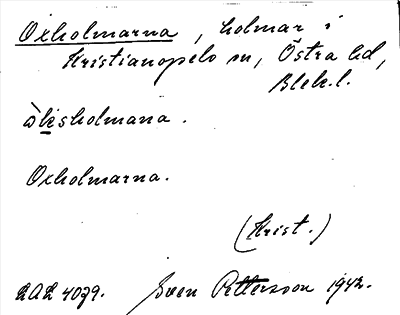 Oxholmarna, holmar i
Kristianopels sn, Östra hd,
Blek.l.
ò̀ksholmana.
Oxholmarna.
(Krist.)
LAL 4079. Sven Pettersson 1942.